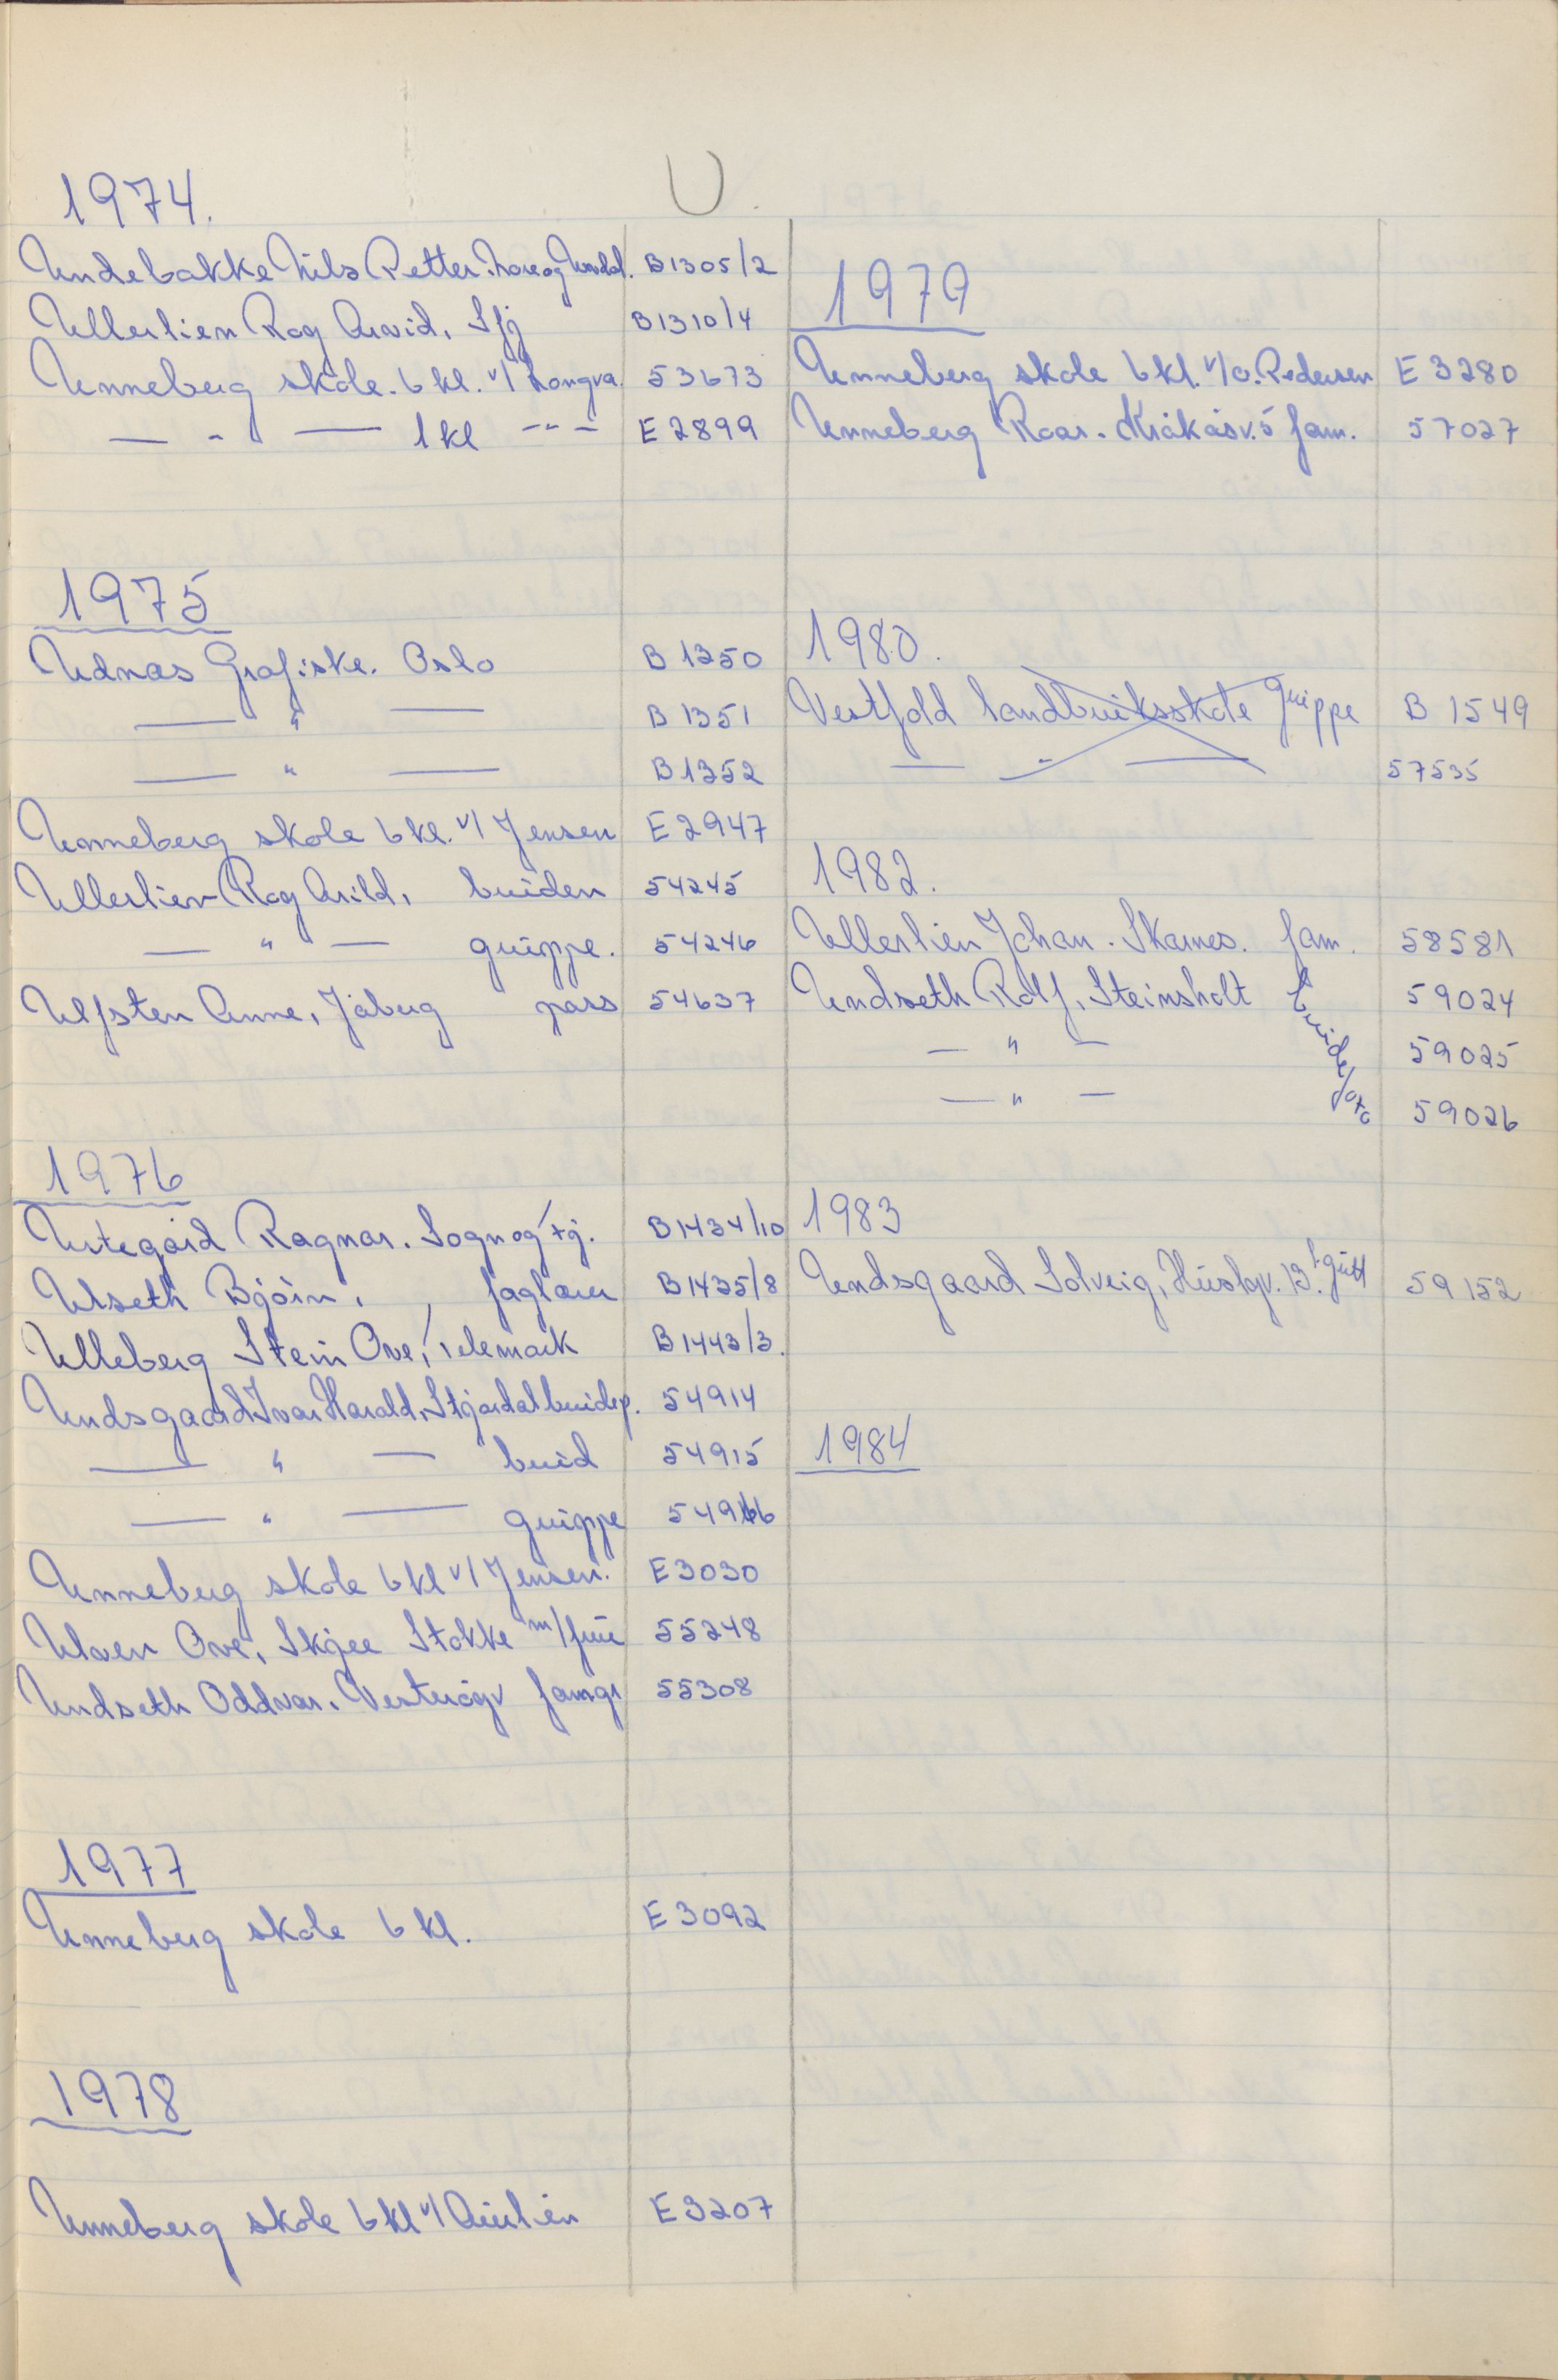 U
1974.
Undebakke Nils Petter. Møre og Romsdal. B1305/2
Ullerlien Roy Arvid, Sfj B1310/4
Unneberg skole. 6 kl. v/ Longva. 53673
— " — 1 kl -"- E 2899
1975
Udnæs Grafiske. Oslo B 1350
— " — B 1351
— " — B 1352
Unneberg skole 6 kl. v/ Jensen E 2947
Ullerlien Roy Arild, bruden 54245
— " — gruppe. 54246
Ulfsten Anne, Jåberg pass 54637
1976
Urtegård Ragnar. Sogn og Fj. B1434/10
Ulseth Bjørn, faglærer B1435/8
Ulleberg Stein Ove, Telemark B1443/3.
Undsgaard Ivar Harald, Stjørdal brudep. 54914
— " — brud 54915
— " — gruppe 54916
Unneberg skole 6 kl v/ Jensen. E3030
Ulven Ove, Skjee Stokke m/frue 55248
Undseth Oddvar. Vesterøyv famgr 55308
1977
Unneberg skole 6 kl. E 3092
1978
Unneberg skole 6 kl v/ E3207
1979
Unneberg skole 6 kl. v/ O. Pedersen E 3280
Unneberg Roar. Kråkåsv. 5 fam. 57027
1980.
Vestfold landbruksskole gruppe B 1549
— " — 57535
1982.
Ullerlien Johan. Skarnes. fam. 58581
Undseth Rolf, Steinsholt brudefoto 59024
— " — 59025
— " — 59026
1983
Undsgaard Solveig, Husbyv. 13. 1 gutt 59152
1984